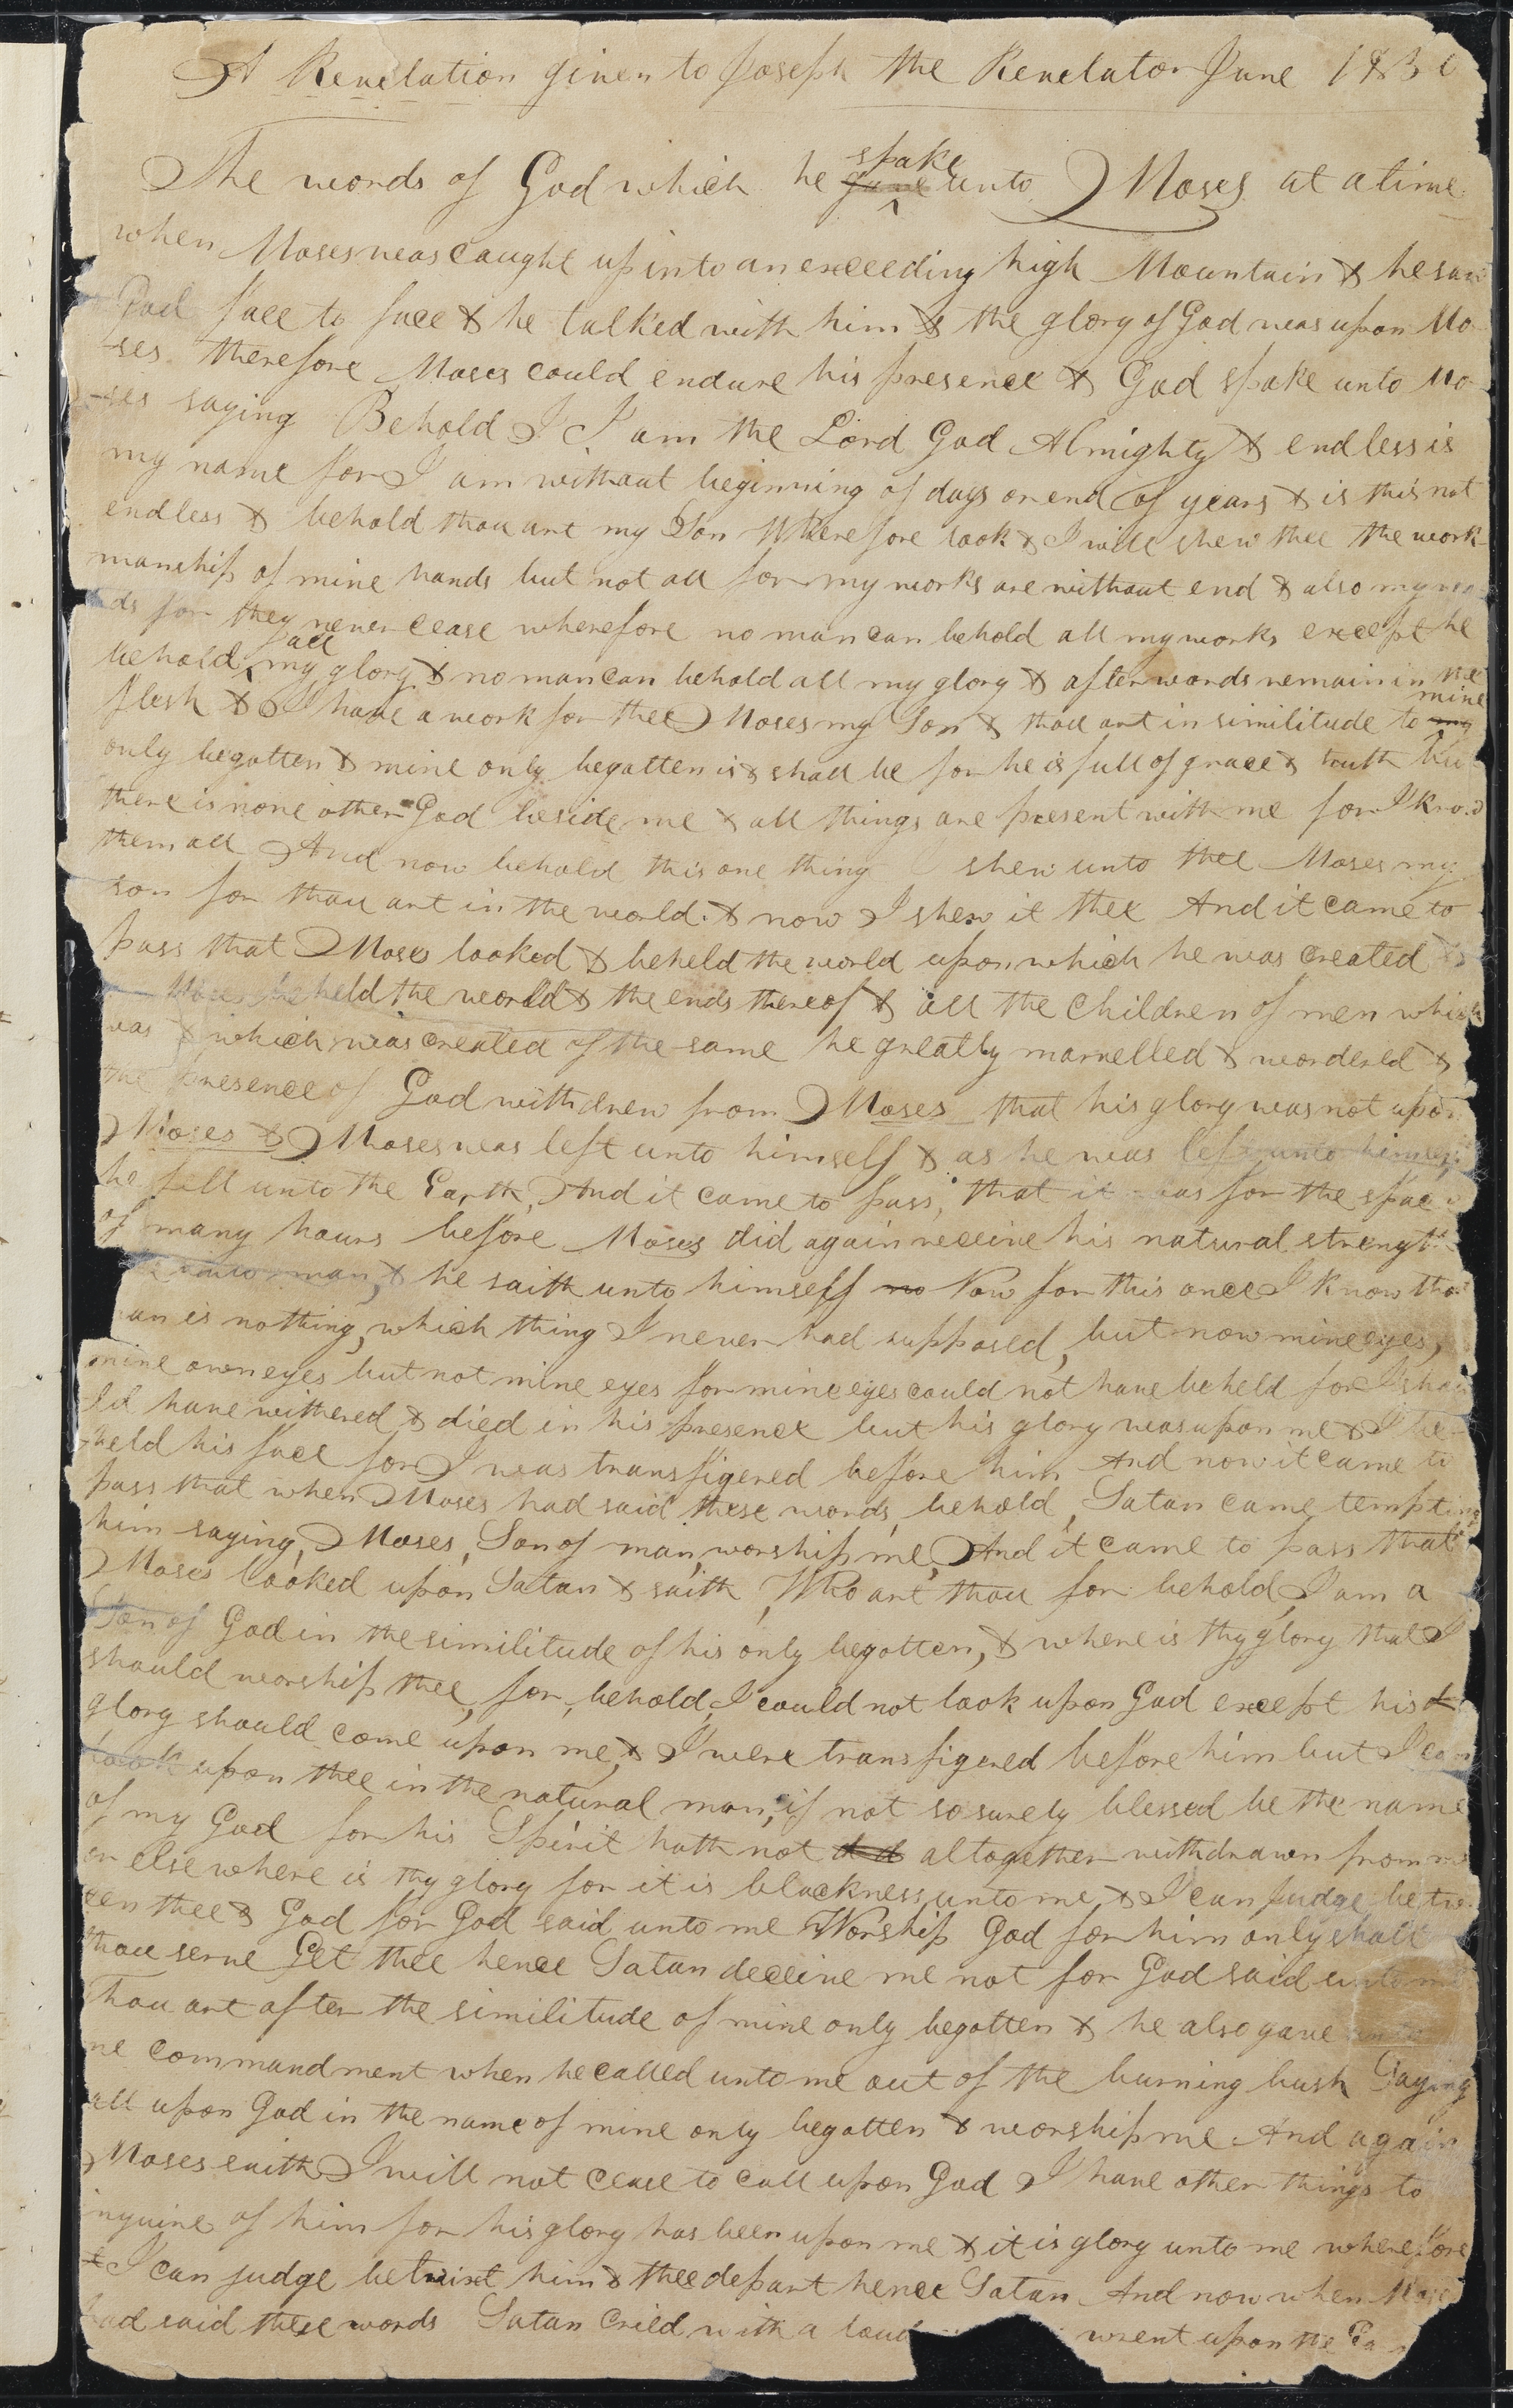 A Revelation given to Joseph the Revelator June 1830
The words of God which he gave spake unto Moses at a time
when Moses was caught up into an exceeding high Mountain & he saw
God face to face & he talked with him & the glory of God was upon Mo
-ses therefore Moses could endure his presence & God spake unto Mo-
-ses saying Behold I I am the Lord God Almighty & endless is
my name for I am without beginning of days or end of years & is this not
endless & behold thou art my Son Wherefore look & I will shew thee the work-
manship of mine hands but not all for my works are without end & also my wor
ds for they never cease wherefore no man can behold all my works except he
behold all my glory & no man can behold all my glory & after wards remain in the
flesh & I have a work for thee Moses my Son & thou art in similitude to my mine
only begotten & mine only begotten is & shall be for he is full of grace & truth but
there is none other God beside me & all things are present with me for I know
them all And now behold this one thing I shew unto thee Moses my
son for thou art in the world & now I shew it thee And it came to
pass that Moses looked & beheld the world upon which he was created &
Moses beheld the world & the ends thereof & all the Children of men which
was & which was created of the same he greatly marvelled & wondered &
the presence of God withdrew from Moses that his glory was not upon
Moses & Moses was left unto himself & as he was left unto himself
he fell unto the Earth, And it came to pass, that it was for the space
of many hours before Moses did again receive his natural strength
unto man, & he saith unto himself no Now for this once I know that
man is nothing, which thing I never had supposed, but now mine eyes,
mine own eyes but not mine eyes for mine eyes could not have beheld for I shou
ld have withered & died in his presence but his glory was upon me & I be-
-held his face for I was transfigered before him And now it came to
pass that when Moses had said these words, behold, Satan came tempting
him saying, Moses, Son of man, worship me, And it came to pass that
Moses looked upon Satan & saith, Who art thou for behold, I am a
Son of God in the similitude of his only begotten, & where is thy glory that I
should worship thee, for, behold, I could not look upon God except his
glory should come upon me, & I were transfigered before him but I can
look upon thee in the natural man, if not so surely blessed be the name
of my God for his Spirit hath not altogether withdrawn from me
or else where is thy glory for it is blackness unto me & I can judge betw
een thee & God for God said unto me Worship God for him only shalt
thou serve Get thee hence Satan deceive me not for God said unto me
Thou art after the similitude of mine only begotten & he also gave unto
me commandment when he called unto me out of the burning bush Saying
call upon God in the name of mine only begotten & worship me And again
Moses saith I will not cease to call upon God I have other things to
inquire of him for his glory has been upon me & it is glory unto me wherefore
& I can judge betwixt him & thee depart hence Satan And now when Moses
had said these words Satan cried with a loud went upon the Ea